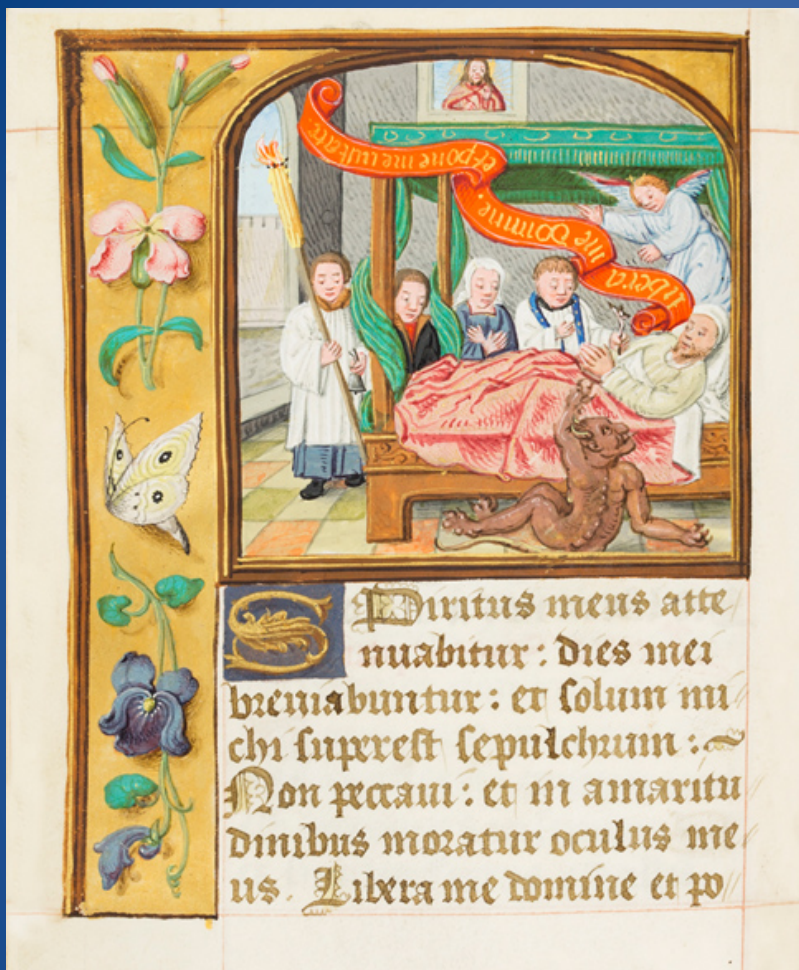 libera me domine. et pone me iuxta te.
Spiritus meus atte
nuabitur : dies mei
breuiabuntur : et solum mi
chi superest sepulchrum :~
Non peccaui : et in amaritu
dinibus moratur oculus me
us. Libera me domine et po